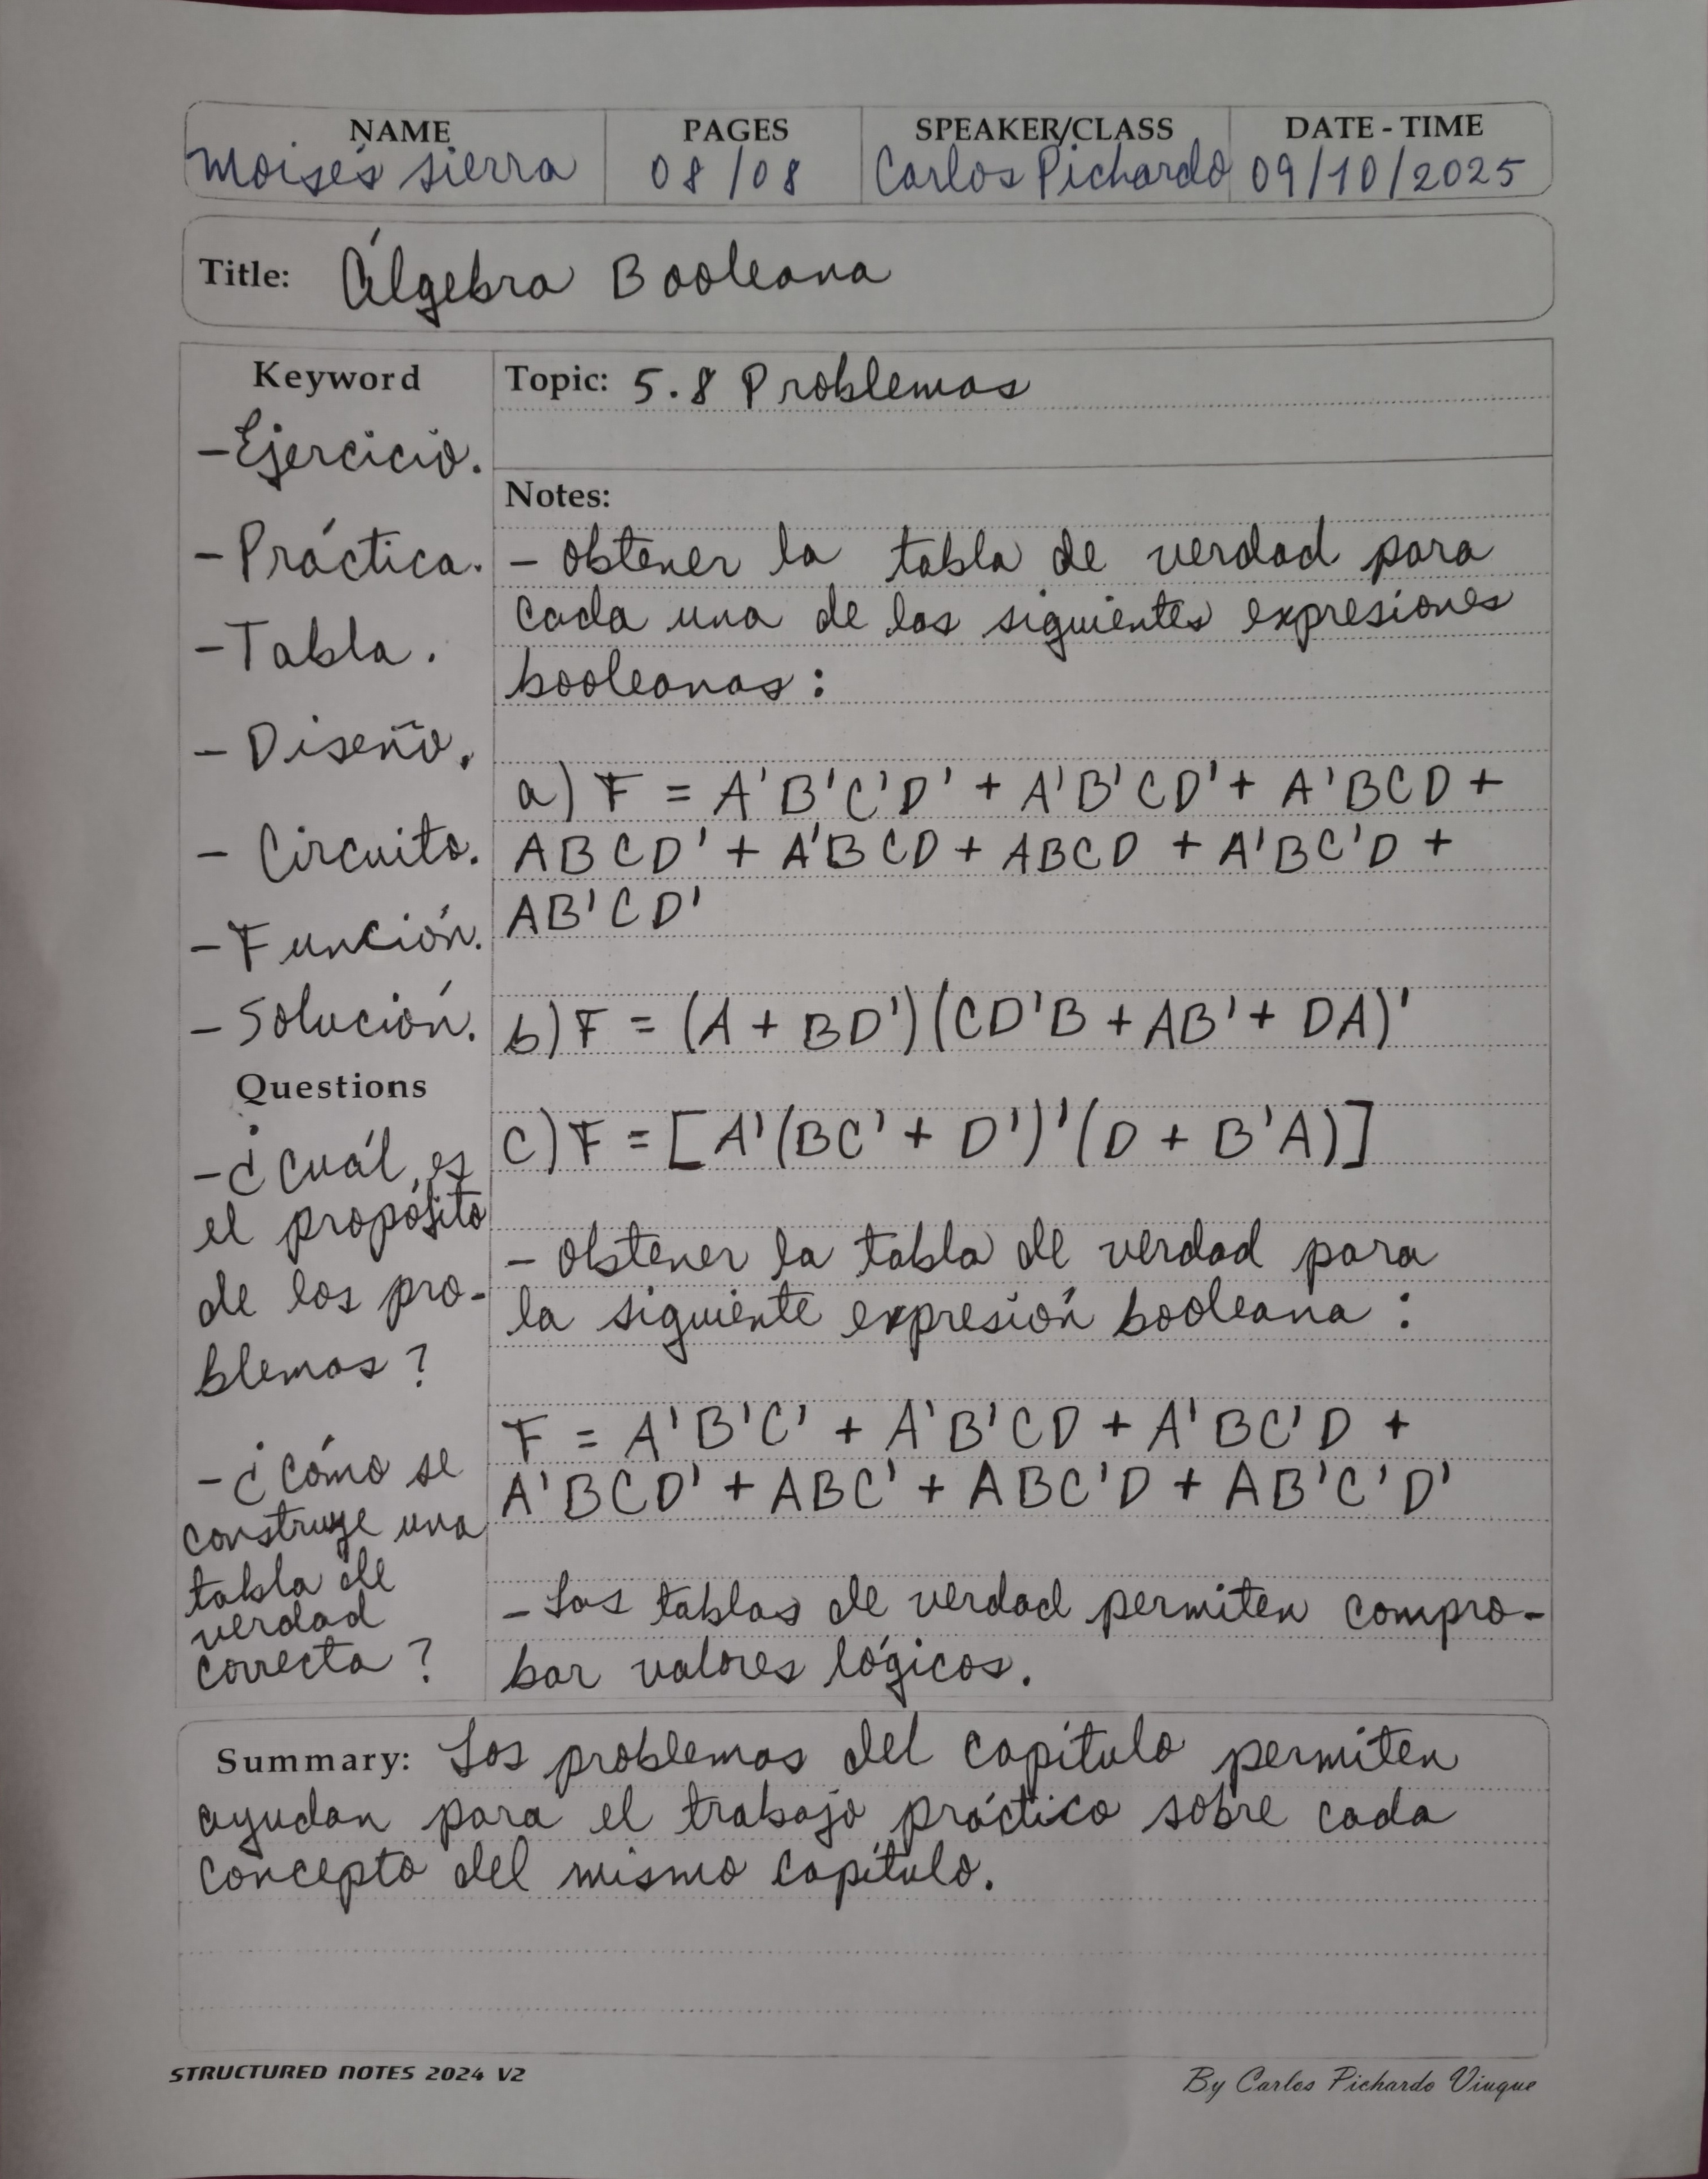 NAME PAGES SPEAKER/CLASS DATE - TIME
Moisés Sierra 08/08 Carlos Pichardo 09/10/2025
Title: Álgebra Booleana
Keyword
-Ejercicio.
-Práctica.
-Tabla.
-Diseño.
-Circuito.
-Función.
-Solución.
Questions
-¿Cuál es
el propósito
de los pro-
blemas?
-¿Cómo se
construye una
tabla de
verdad
correcta?
Topic: 5.8 Problemas
Notes:
- Obtener la tabla de verdad para
cada una de las siguientes expresiones
booleanas:
a) F = A'B'C'D' + A'B'CD' + A'BCD +
ABCD' + A'BCD + ABCD + A'BC'D +
AB'CD'
b) F = (A + BD')(CD'B + AB' + DA)'
C) F = [A'(BC' + D')'(D + B'A)]
- Obtener la tabla de verdad para
la siguiente expresión booleana:
F = A'B'C' + A'B'CD + A'BC'D +
A'BCD' + ABC' + ABC'D + AB'C'D'
- Las tablas de verdad permiten compro-
bar valores lógicos.
Summary: Los problemas del capítulo permiten
ayudan para el trabajo práctico sobre cada
concepto del mismo capítulo.
STRUCTURED NOTES 2024 V2
By Carlos Pichardo Viuque